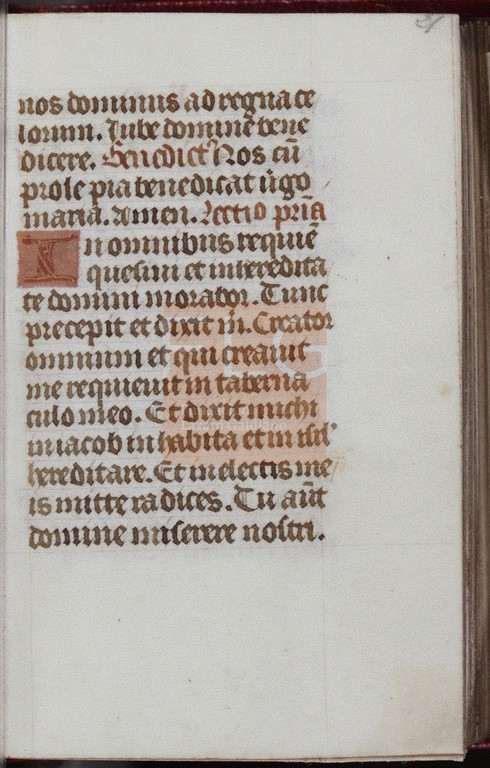 21
nos dominus ad regna ce
lorum. Iube domine bene
dicere. Benedict' Nos cū
prole pia benedicat ūgo
maria. Amen. Lectio prīa
In omnibus requiē
quesiui et inheredita
te domini morabor. Tunc
precepit et dixit m̄. Creator
omnium et qui creauit
me requieuit in taberna
culo meo. Et dixit michi
in iacob inhabita et in isrl'
hereditare. Et in electis me
is mitte radices. Tu aūt
domine miserere nostri.